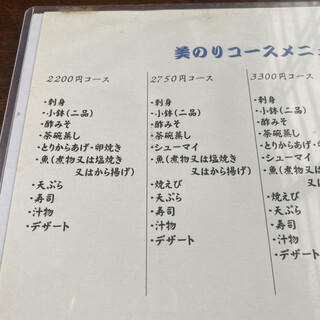 美のりコースメニ
2200円コース
・刺身
・小鉢(二品)
・酢みそ
・茶碗蒸し
・とりからあげ・卵焼き
・魚(煮物又は塩焼き
又はから揚げ)
・天ぷら
・寿司
・汁物
・デザート
2750円コース
・刺身
・小鉢(二品)
・酢みそ
・茶碗蒸し
・シューマイ
・魚(煮物又は塩焼き
又はから揚げ)
・焼えび
・天ぷら
・寿司
・汁物
・デザート
3300円コース
・刺身
・小鉢(二品)
・酢みそ
・茶碗蒸し
・とりからあげ・
・シューマイ
・魚(煮物又は
又は
・焼えび
・天ぷら
・寿司
・汁物
・デザー